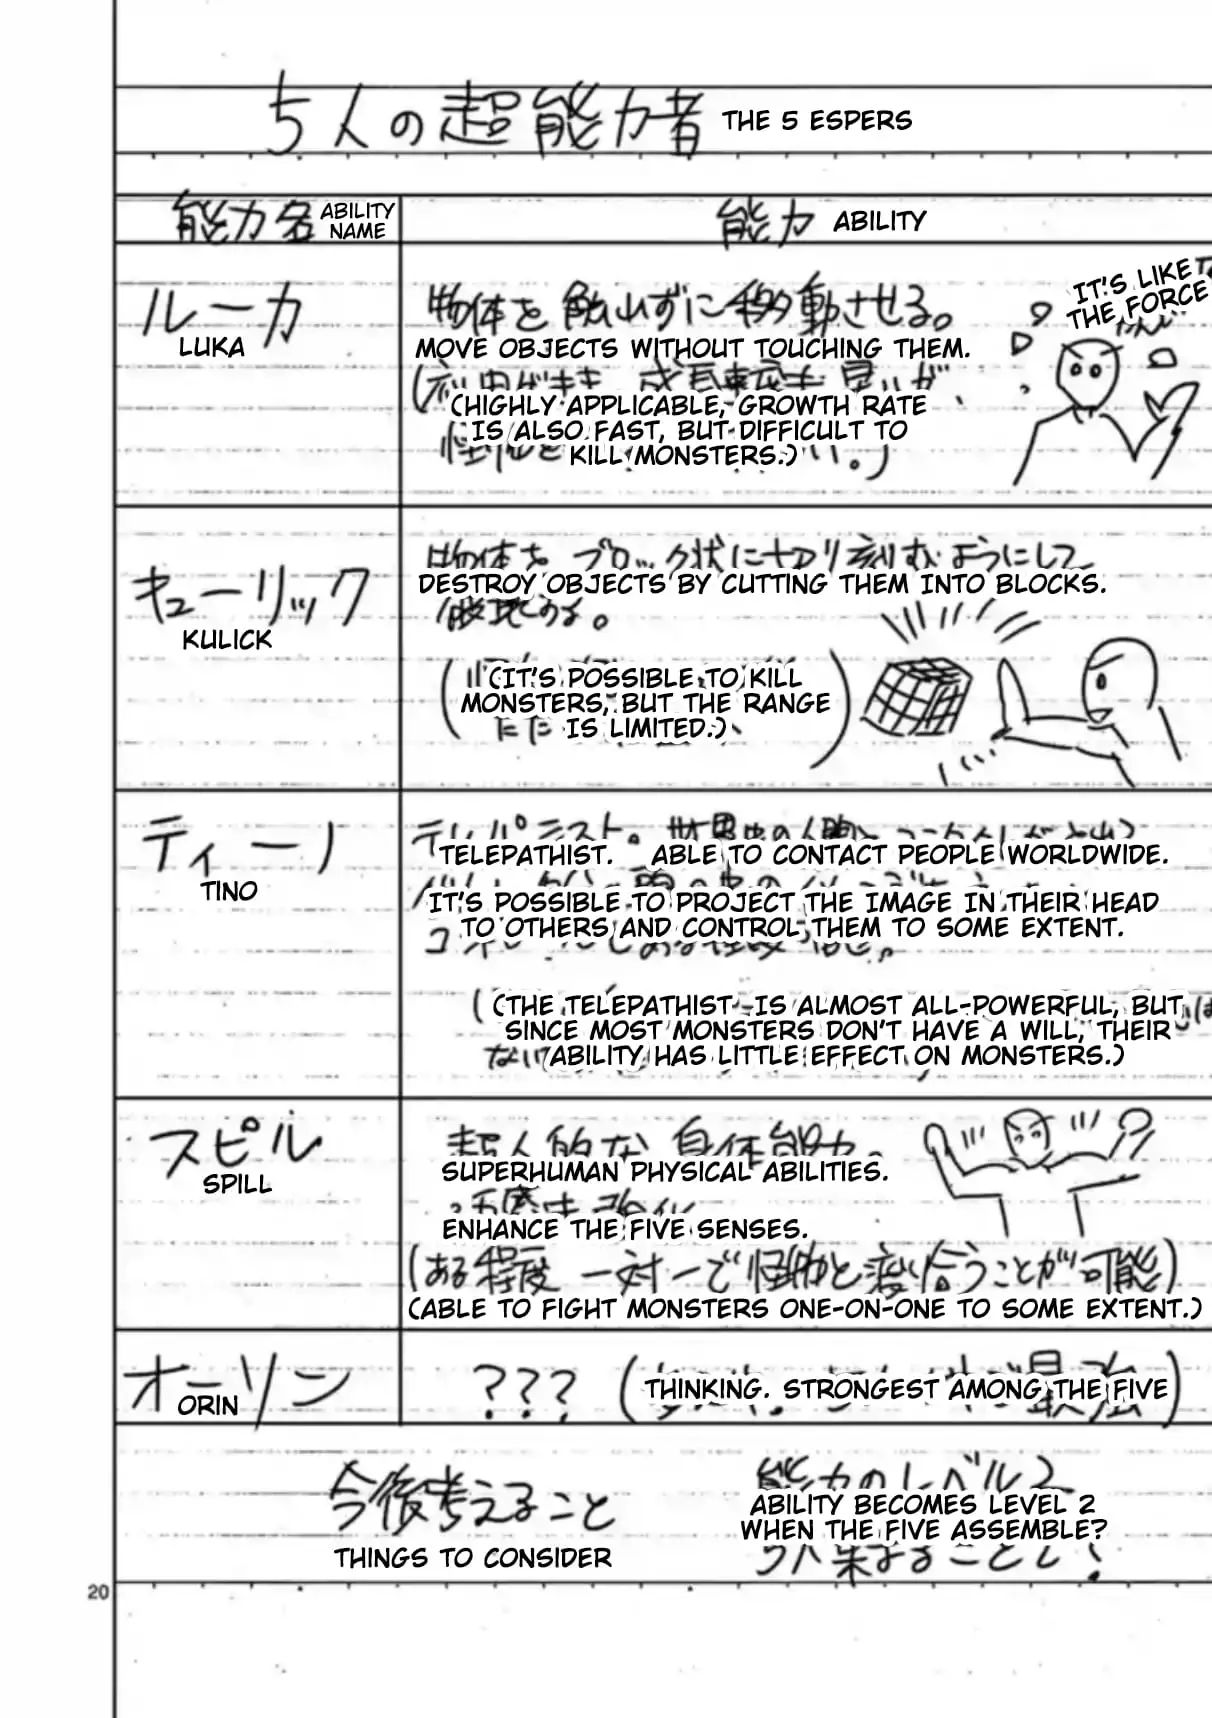 5人の超能力者 THE 5 ESPERS
能力名 ABILITY
NAME
能力 ABILITY
ルーカ
LUKA
物体を触れずに移動させる。
MOVE OBJECTS WITHOUT TOUCHING THEM.
(HIGHLY APPLICABLE, GROWTH RATE
IS ALSO FAST, BUT DIFFICULT TO
KILL MONSTERS.)
IT'S LIKE
THE FORCE
キューリック
KULICK
物体を ブロック状に切り刻むようにして
DESTROY OBJECTS BY CUTTING THEM INTO BLOCKS.
(IT'S POSSIBLE TO KILL
MONSTERS, BUT THE RANGE
IS LIMITED.)
ティーノ
TINO
TELEPATHIST. ABLE TO CONTACT PEOPLE WORLDWIDE.
IT'S POSSIBLE TO PROJECT THE IMAGE IN THEIR HEAD
TO OTHERS AND CONTROL THEM TO SOME EXTENT.
(THE TELEPATHIST IS ALMOST ALL-POWERFUL, BUT
SINCE MOST MONSTERS DON'T HAVE A WILL, THEIR
ABILITY HAS LITTLE EFFECT ON MONSTERS.)
スピル
SPILL
超人的な 身体能力。
SUPERHUMAN PHYSICAL ABILITIES.
ENHANCE THE FIVE SENSES.
(ある程度 一対一で怪物と渡り合うことが可能)
(ABLE TO FIGHT MONSTERS ONE-ON-ONE TO SOME EXTENT.)
オーリン
ORIN
???
THINKING. STRONGEST AMONG THE FIVE
最強)
今後考えること
THINGS TO CONSIDER
能力のレベル2
ABILITY BECOMES LEVEL 2
WHEN THE FIVE ASSEMBLE?
20